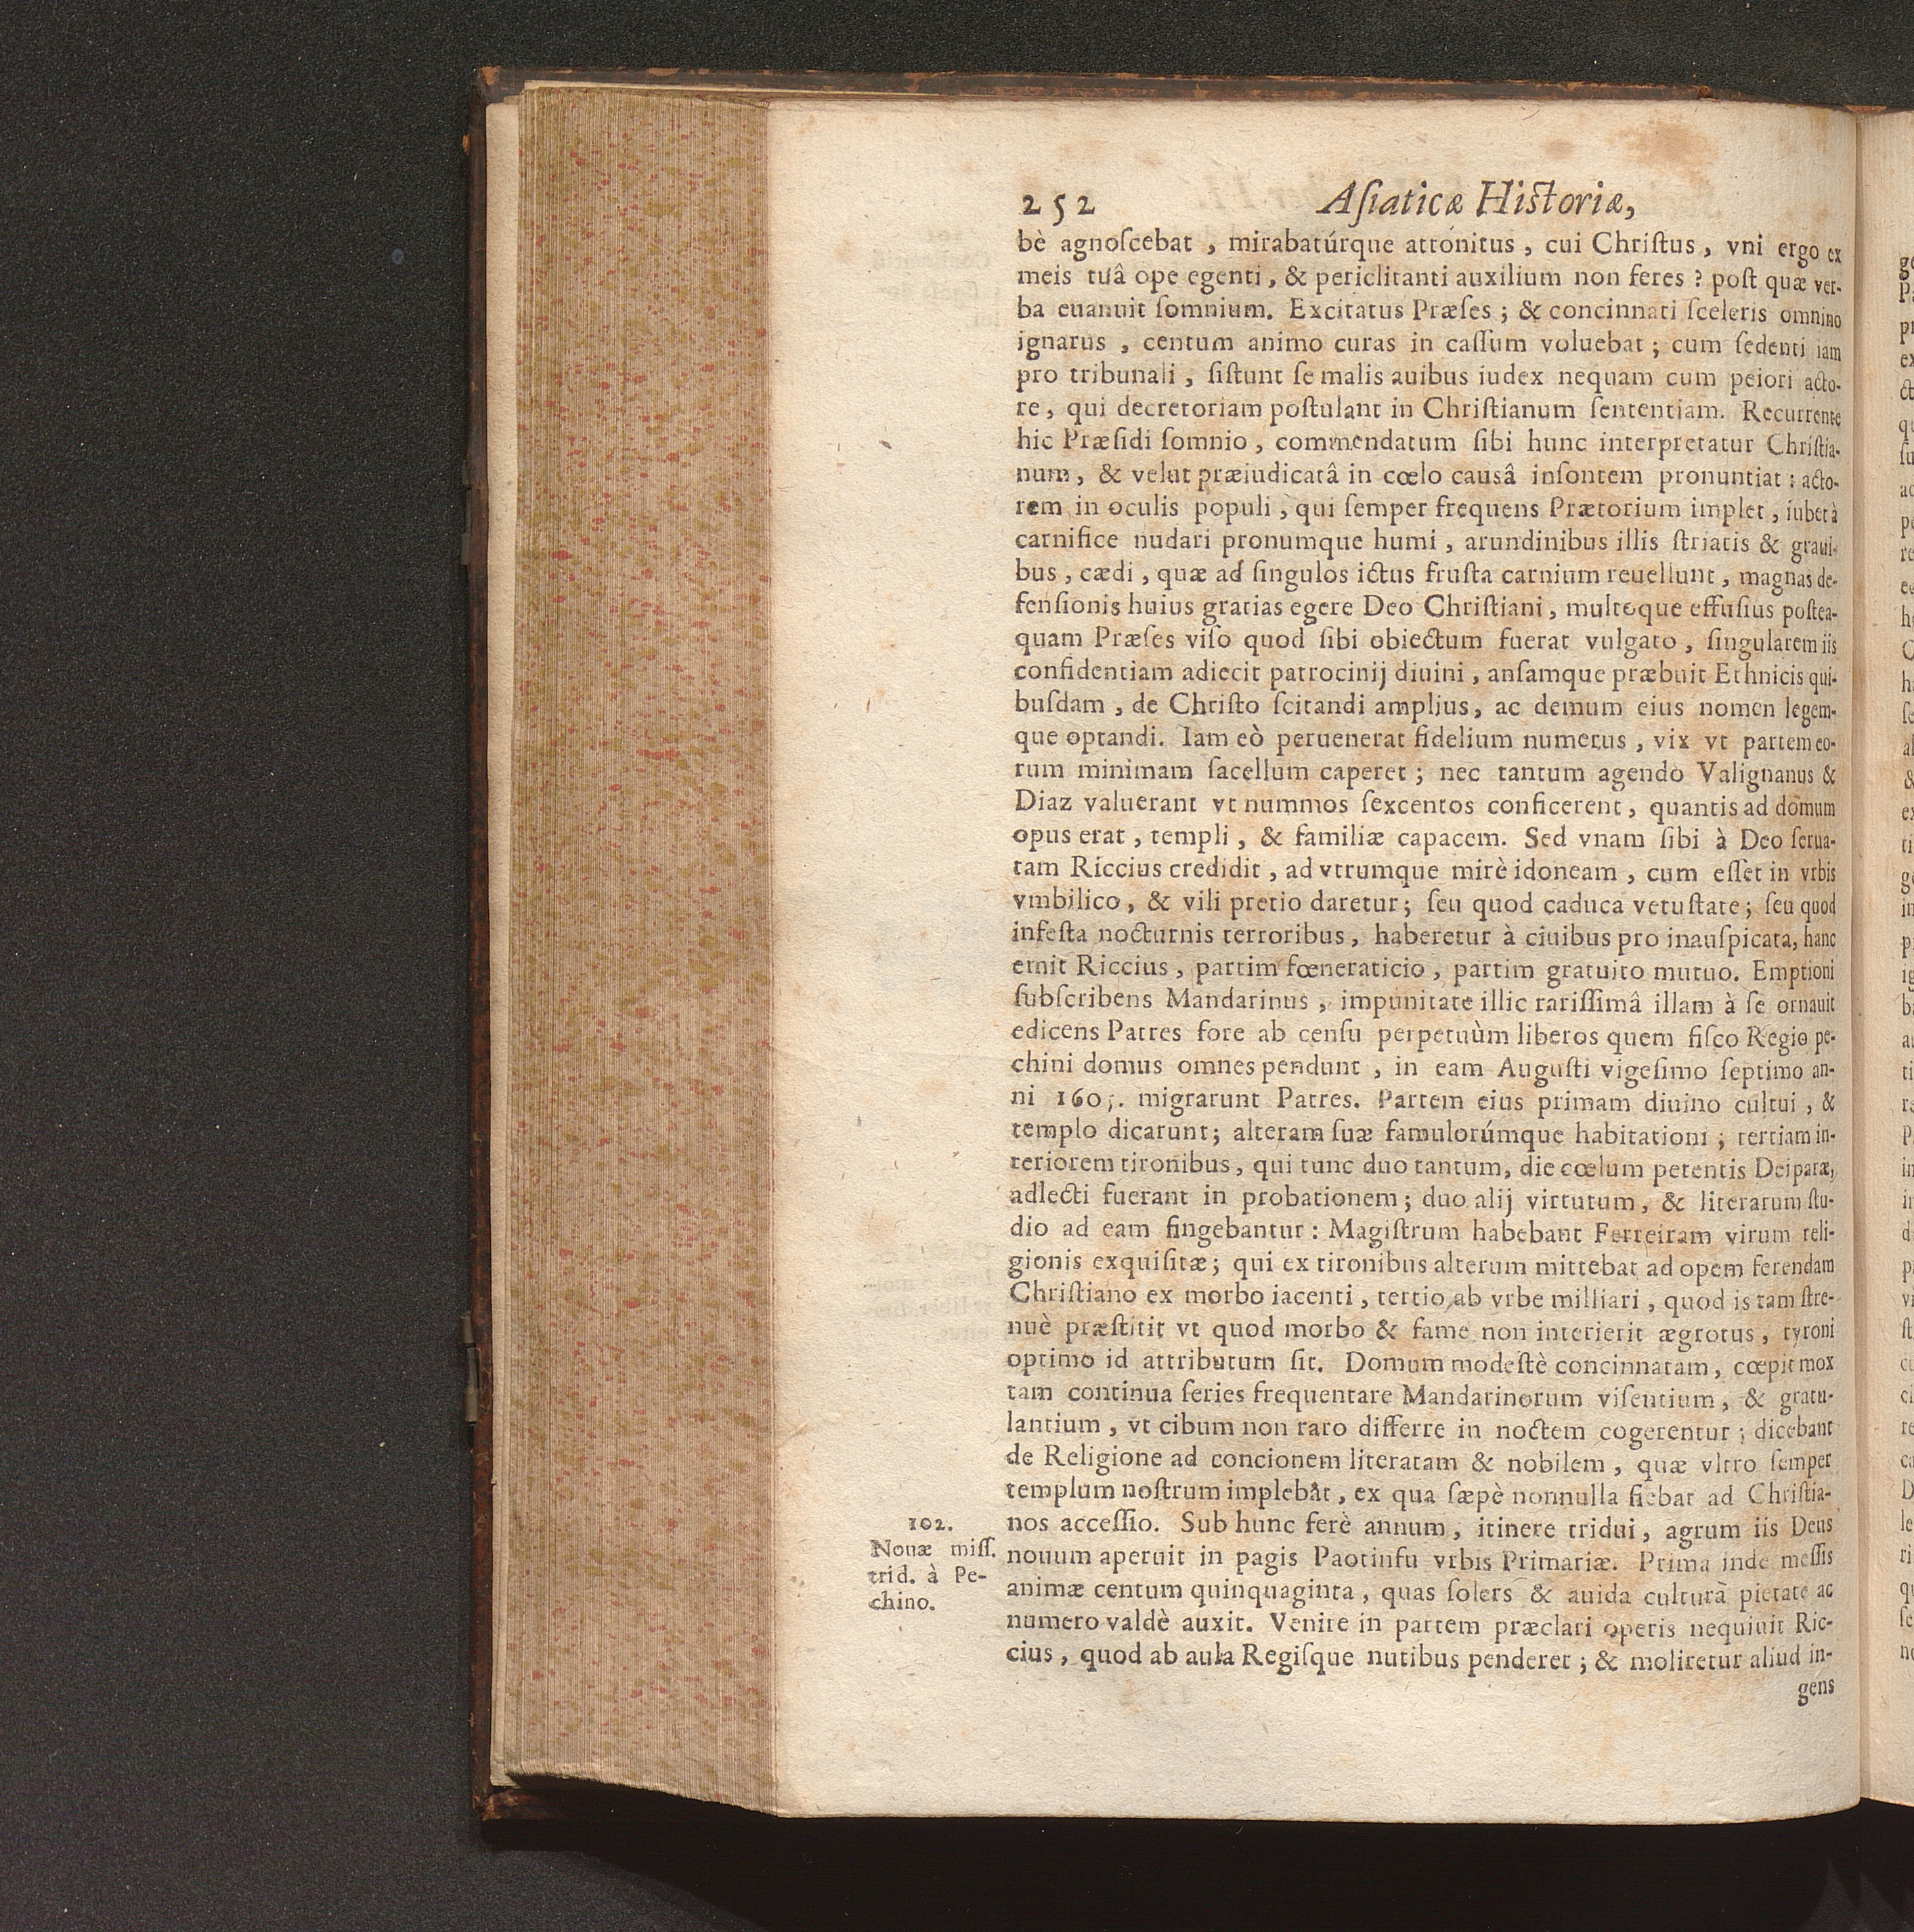 252 Asiaticæ Historiæ,
bè agnoscebat, mirabatúrque attonitus, cui Christus, vni ergo ex
meis tuâ ope egenti, & periclitanti auxilium non feres? post quæ ver-
ba euanuit somnium. Excitatus Præses; & concinnati sceleris omnino
ignarus, centum animo curas in cassum voluebat; cum sedenti iam
pro tribunali, sistunt se malis auibus iudex nequam cum peiori acto-
re, qui decretoriam postulant in Christianum sententiam. Recurrente
hic Præsidi somnio, commendatum sibi hunc interpretatur Christia-
num, & velut præiudicatâ in cœlo causâ insontem pronuntiat: acto-
rem in oculis populi, qui semper frequens Prætorium implet, iubet à
carnifice nudari pronumque humi, arundinibus illis striatis & graui-
bus, cædi, quæ ad singulos ictus frusta carnium reuellunt, magnas de-
fensionis huius gratias egere Deo Christiani, multoque effusius postea-
quam Præses viso quod sibi obiectum fuerat vulgato, singularem iis
confidentiam adiecit patrocinij diuini, ansamque præbuit Ethnicis qui-
busdam, de Christo scitandi amplius, ac demum eius nomen legem-
que optandi. Iam eò peruenerat fidelium numerus, vix vt partem eo-
rum minimam sacellum caperet; nec tantum agendo Valignanus &
Diaz valuerant vt nummos sexcentos conficerent, quantis ad domum
opus erat, templi, & familiæ capacem. Sed vnam sibi à Deo serua-
tam Riccius credidit, ad vtrumque mirè idoneam, cum esset in vrbis
vmbilico, & vili pretio daretur; seu quod caduca vetustate; seu quod
infesta nocturnis terroribus, haberetur à ciuibus pro inauspicata, hanc
emit Riccius, partim fœneraticio, partim gratuito mutuo. Emptioni
subscribens Mandarinus, impunitate illic rarissimâ illam à se ornauit
edicens Patres fore ab censu perpetuùm liberos quem fisco Regio pe-
chini domus omnes pendunt, in eam Augusti vigesimo septimo an-
ni 1605. migrarunt Patres. Partem eius primam diuino cultui, &
templo dicarunt; alteram suæ famulorúmque habitationi; tertiam in-
teriorem tironibus, qui tunc duo tantum, die cœlum petentis Deiparæ,
adlecti fuerant in probationem; duo alij virtutum, & literarum stu-
dio ad eam fingebantur: Magistrum habebant Ferreiram virum reli-
gionis exquisitæ; qui ex tironibus alterum mittebat ad opem ferendam
Christiano ex morbo iacenti, tertio ab vrbe milliari, quod is tam stre-
nuè præstitit vt quod morbo & fame non interierit ægrotus, tyroni
optimo id attributum sit. Domum modestè concinnatam, cœpit mox
tam continua series frequentare Mandarinorum visentium, & gratu-
lantium, vt cibum non raro differre in noctem cogerentur; dicebant
de Religione ad concionem literatam & nobilem, quæ vltro semper
templum nostrum implebat, ex qua sæpè nonnulla fiebat ad Christia-
nos accessio. Sub hunc ferè annum, itinere tridui, agrum iis Deus
nouum aperuit in pagis Paotinfu vrbis Primariæ. Prima inde messis
animæ centum quinquaginta, quas solers & auida culturâ pietate ac
numero valdè auxit. Venire in partem præclari operis nequiuit Ric-
cius, quod ab aula Regisque nutibus penderet; & moliretur aliud in-
gens
102.
Nouæ miss.
trid. à Pe-
chino.